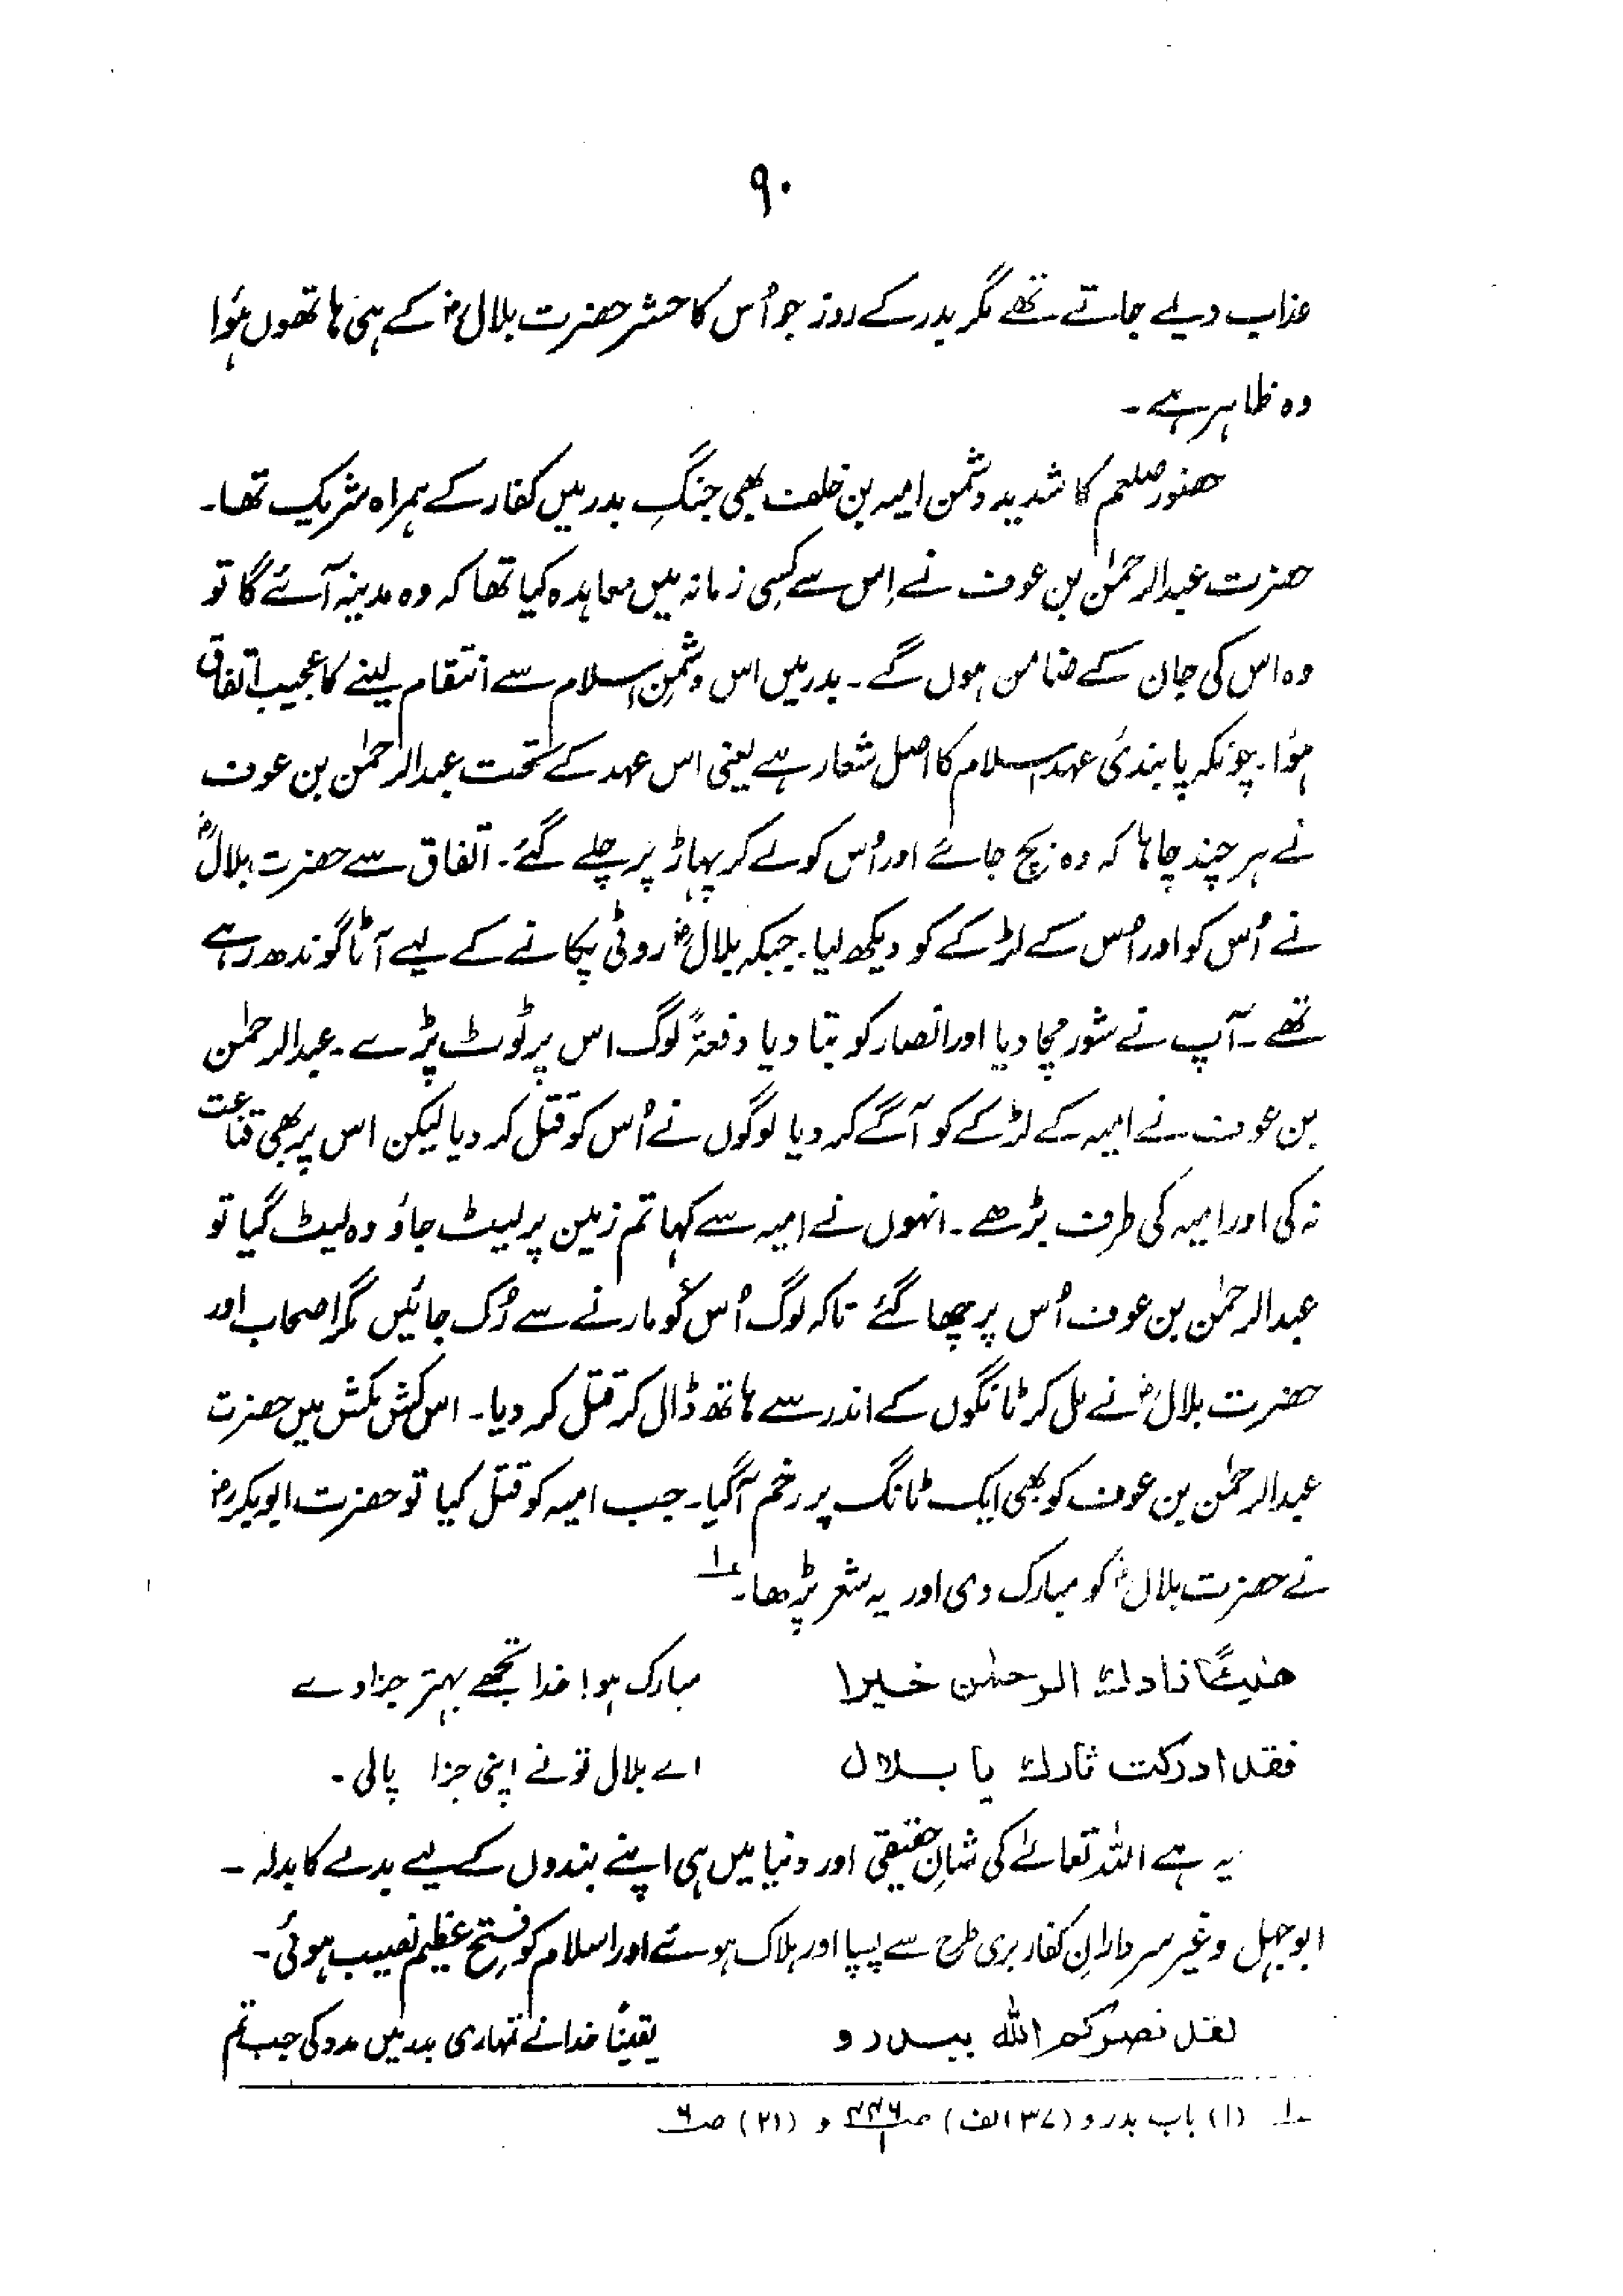 ۹۰
عذاب دیے جاتے تھے مگر بدر کے روز جو اُس کا حشر حضرت بلالؓ کے ہی ہاتھوں ہوُا
وہ ظاہر ہے ۔
حضور صلعم کا شدید دشمن امیہ بن خلف بھی جنگِ بدر میں کفار کے ہمراہ شریک تھا۔
حضرت عبدالرحمٰن بن عوف نے اِس سے کِسی زمانہ میں معاہدہ کیا تھا کہ وہ مدینہ آئے گا تو
وہ اس کی جان کے ضامن ہوں گے ۔ بدر میں اس دشمنِ اسلام سے انتقام لینے کا عجیب اتفاق
ہوُا ۔ چونکہ پابندیٔ عہد اسلام کا اصل شعار ہے یعنی اس عہد کے تحت عبدالرحمٰن بن عوف
نے ہر چند چاہا کہ وہ بچ جائے اور اُس کو لے کر پہاڑ پر چلے گئے ۔ اتفاق سے حضرت بلالؓ
نے اُس کو اور اُس کے لڑکے کو دیکھ لیا ۔ جبکہ بلالؓ روٹی پکانے کے لیے آٹا گوندھ رہے
تھے ۔ آپ نے شور مچا دیا اور انصار کو بتا دیا دفعۃً لوگ اس پر ٹوٹ پڑے ۔ عبدالرحمٰن
بن عوف نے امیہ کے لڑکے کو آگے کر دیا لوگوں نے اُس کو قتل کر دیا لیکن اس پر بھی قناعت
نہ کی اور امیہ کی طرف بڑھے ۔ انہوں نے امیہ سے کہا تم زمین پر لیٹ جاؤ وہ لیٹ گیا تو
عبدالرحمٰن بن عوف اُس پر چھا گئے تاکہ لوگ اُس کو مارنے سے رُک جائیں مگر اصحاب اور
حضرت بلالؓ نے مل کر ٹانگوں کے اندر سے ہاتھ ڈال کر قتل کر دیا ۔ اس کش مکش میں حضرت
عبدالرحمٰن بن عوف کو بھی ایک ٹانگ پر زخم آگیا ۔ جب امیہ کو قتل کیا تو حضرت ابوبکرؓ
نے حضرت بلالؓ کو مبارک دی اور یہ شعر پڑھا ۔ ؎۱
ھنیئًا زادك الرحمٰن خیرا مبارک ہو! خدا تجھے بہتر جزا دے
فقد ادرکت ثارك یا بلال اے بلال تو نے اپنی جزا پالی ۔
یہ ہے اللہ تعالےٰ کی شانِ حقیقی اور دنیا میں ہی اپنے بندوں کے لیے بدلے کا بدلہ ۔
ابوجہل وغیر سردارانِ کفار بری طرح سے پسپا اور ہلاک ہوئے اور اسلام کو فتحِ عظیم نصیب ہوئی ۔
لقد نصرکم اللہ ببدر و یقیناً خدا نے تمہاری بدر میں مدد کی جب تم
؎۱ (۱) باب بدر و (۳۷ الف) صـ۴۴۶/۱ و (۲۱) صـ۶